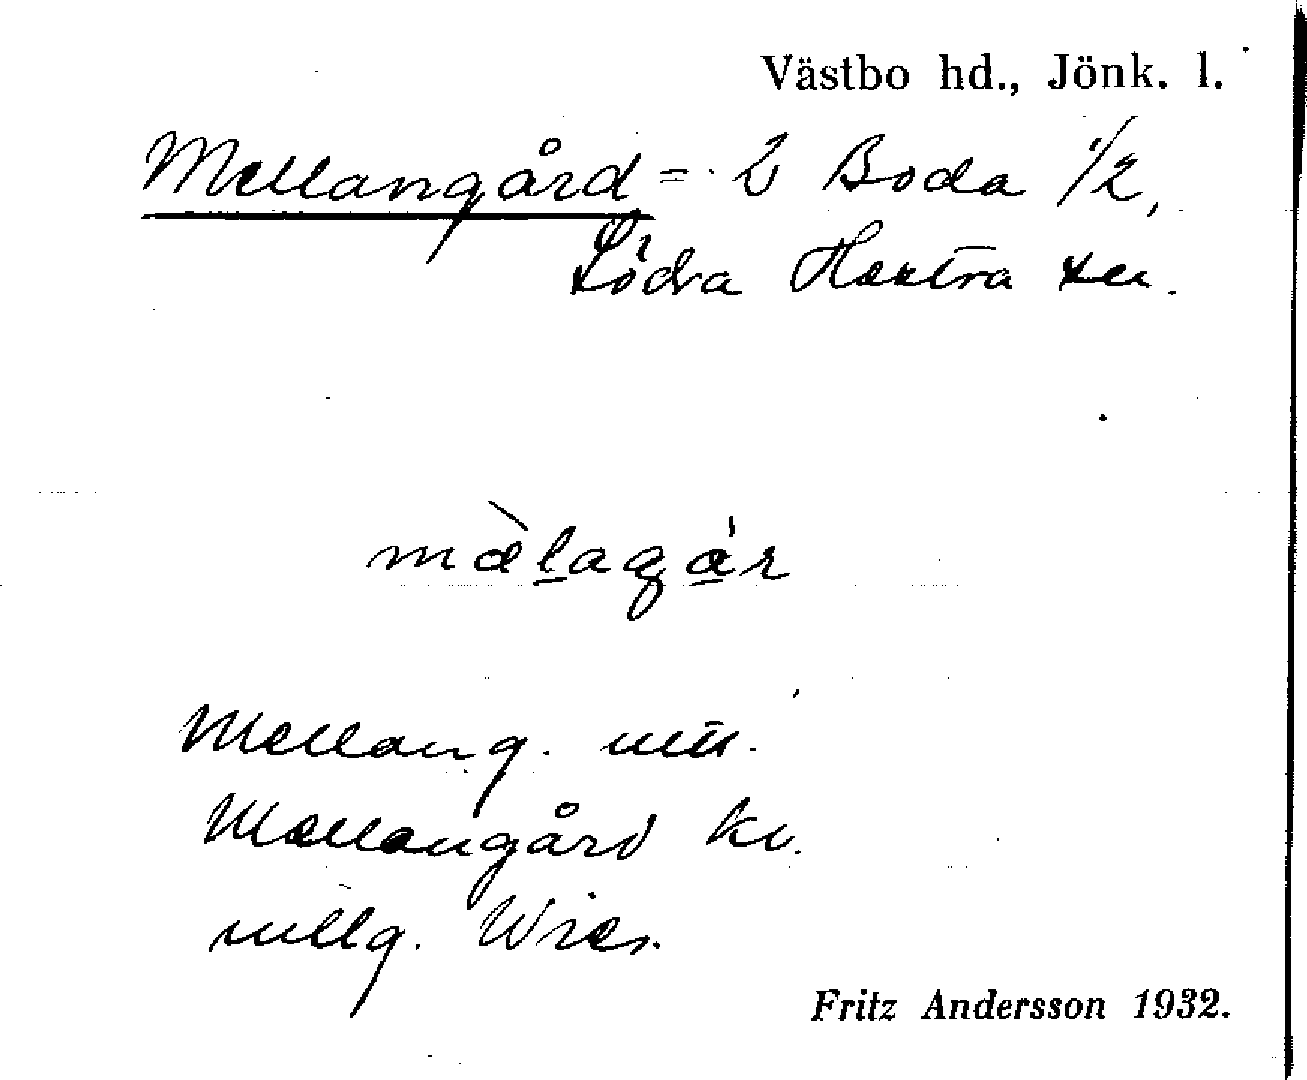 Västbo hd., Jönk. l.
Mellangård = i Boda 1/2,
Södra Hestra sn.
mæ̀lagár
Mellang.
Mellangård kv.
mellg. Wies.
Fritz Andersson 1932.